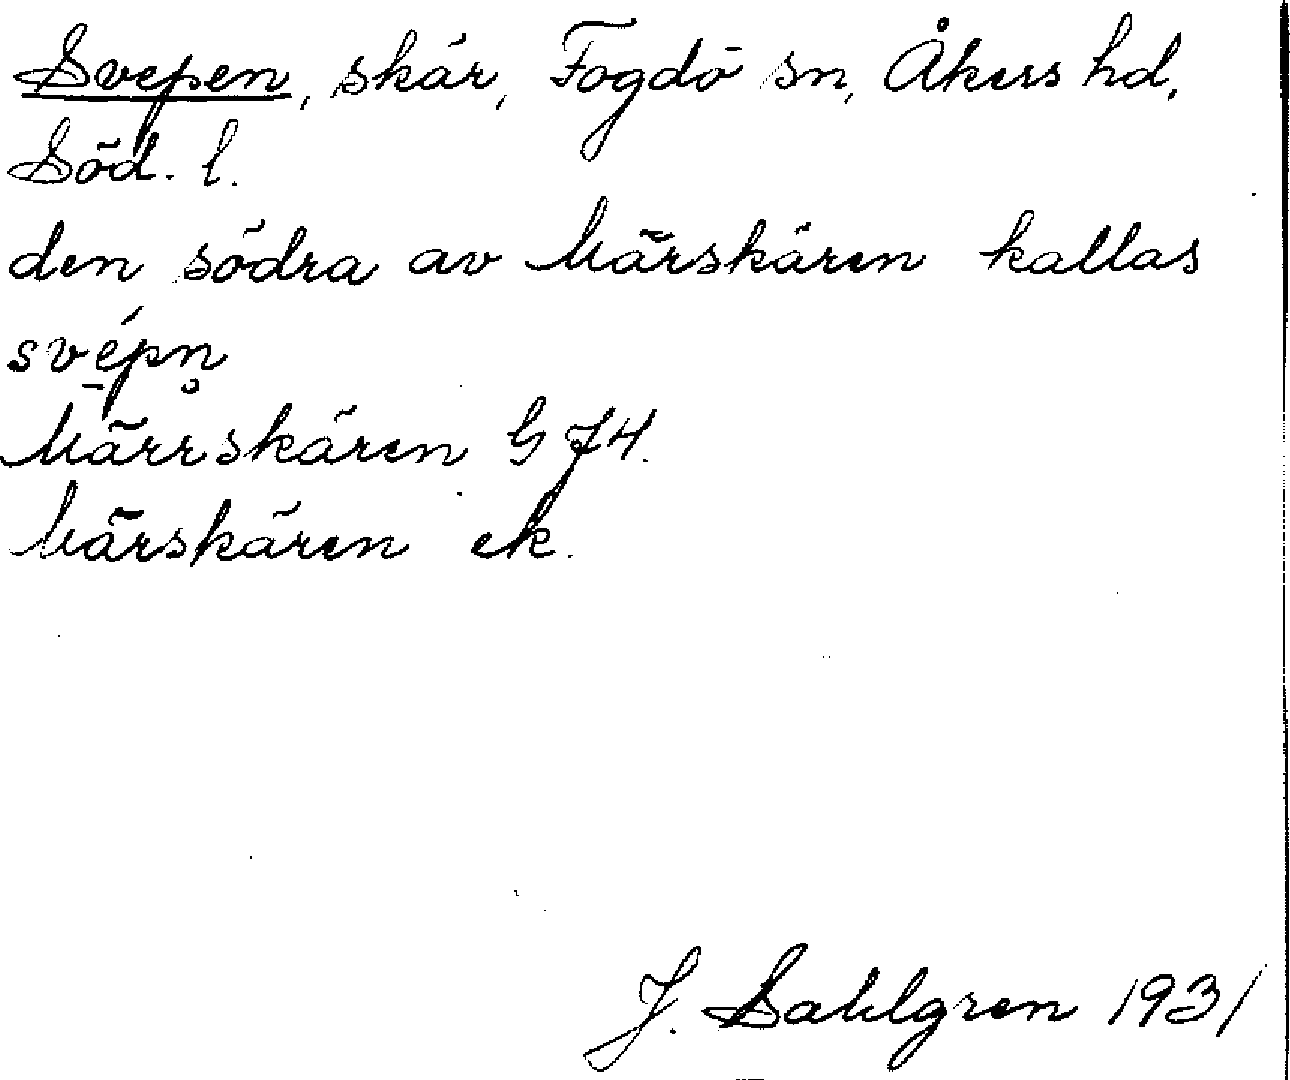 Svepen, skär, Fogdö sn, Åkers hd,
Söd. l.
den södra av Märskären kallas
svép̄n̥
Märrskären G 74.
Märskären ek.
J. Sahlgren 1931